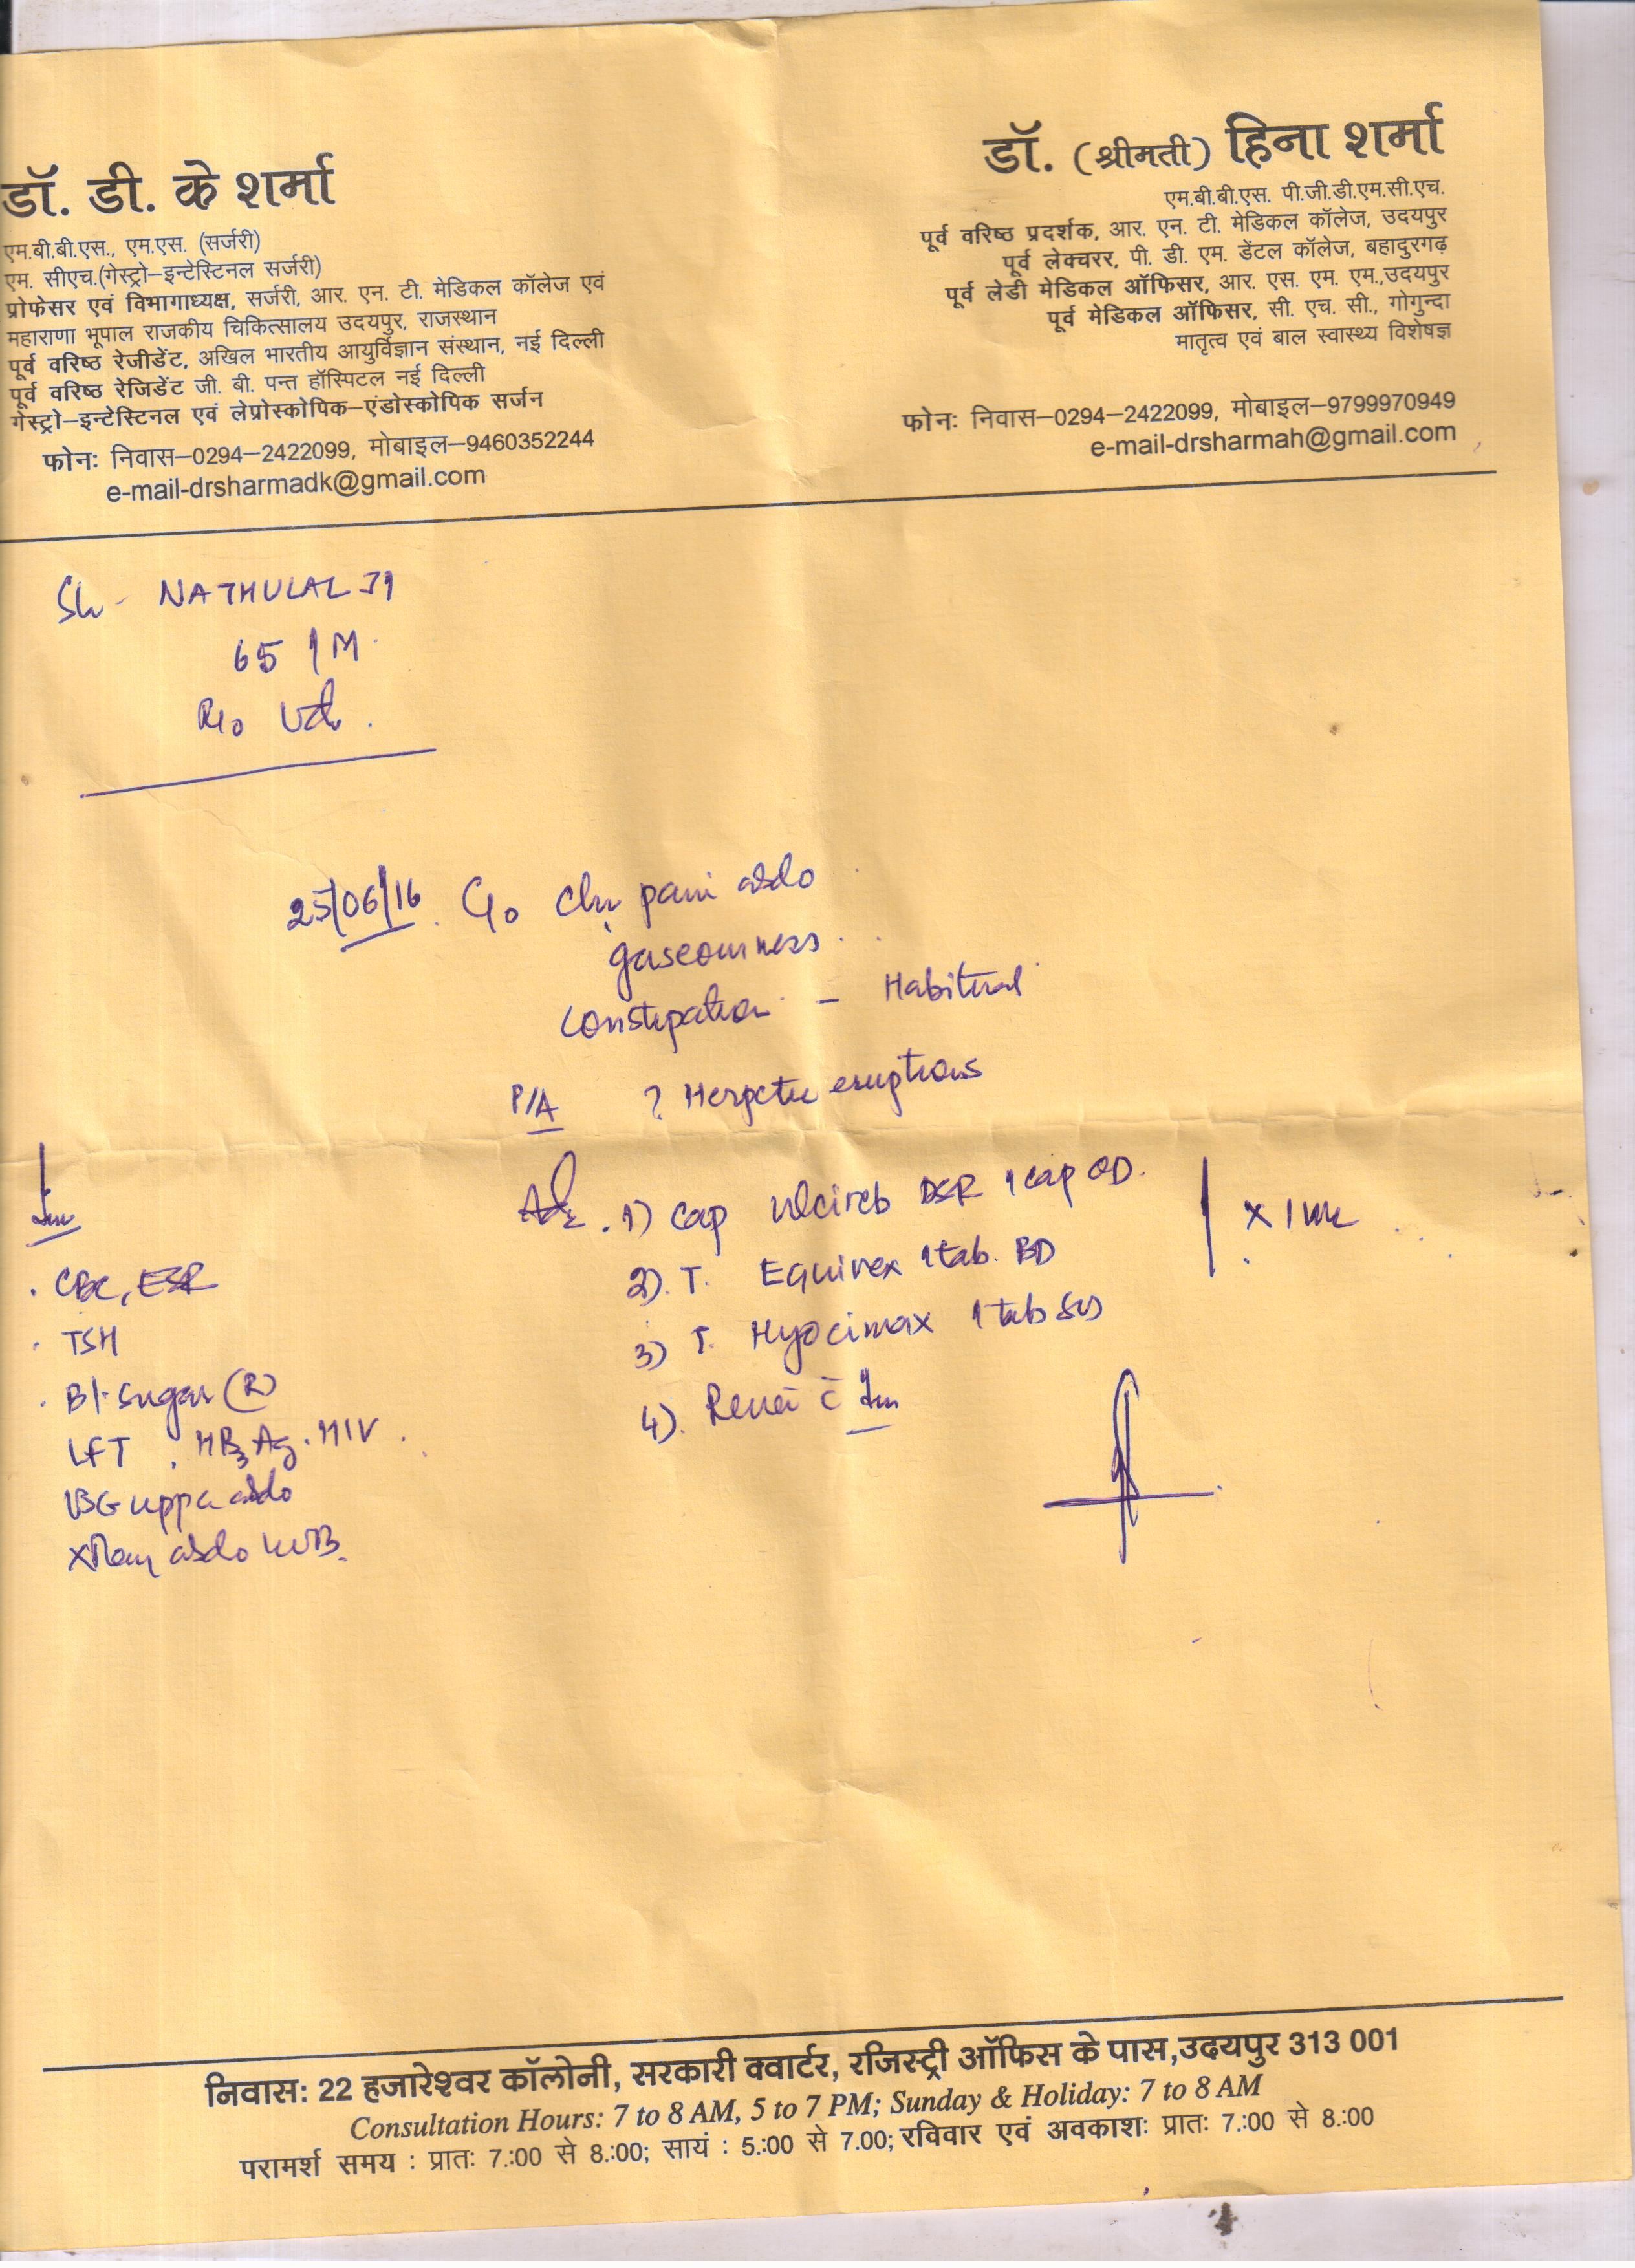 डॉ. डी. के शर्मा
एम.बी.बी.एस., एम.एस. (सर्जरी)
एम. सीएच.(गेस्ट्रो–इन्टेस्टिनल सर्जरी)
प्रोफेसर एवं विभागाध्यक्ष, सर्जरी, आर. एन. टी. मेडिकल कॉलेज एवं
महाराणा भूपाल राजकीय चिकित्सालय उदयपुर, राजस्थान
पूर्व वरिष्ठ रेजीडेंट, अखिल भारतीय आयुर्विज्ञान संस्थान, नई दिल्ली
पूर्व वरिष्ठ रेजिडेंट जी. बी. पन्त हॉस्पिटल नई दिल्ली
गेस्ट्रो–इन्टेस्टिनल एवं लेप्रोस्कोपिक–एंडोस्कोपिक सर्जन
फोनः निवास–0294–2422099, मोबाइल–9460352244
e-mail-drsharmadk@gmail.com
डॉ. (श्रीमती) हिना शर्मा
एम.बी.बी.एस. पी.जी.डी.एम.सी.एच.
पूर्व वरिष्ठ प्रदर्शक, आर. एन. टी. मेडिकल कॉलेज, उदयपुर
पूर्व लेक्चरर, पी. डी. एम. डेंटल कॉलेज, बहादुरगढ़
पूर्व लेडी मेडिकल ऑफिसर, आर. एस. एम. एम.,उदयपुर
पूर्व मेडिकल ऑफिसर, सी. एच. सी., गोगुन्दा
मातृत्व एवं बाल स्वास्थ्य विशेषज्ञ
फोनः निवास–0294–2422099, मोबाइल–9799970949
e-mail-drsharmah@gmail.com
Sh - NATHULAL JI
65 / M
R/o Ud
25/06/16 C/o Chr pain abdo
gaseousness
Constipation - Habitual
P/A ? Herpetic eruptions
Adv. 1) Cap Ulcireb DSR 1 cap OD.
2) T. Equirex 1 tab. BD
x 1 wk
3) T. Hyocimax 1 tab SOS
4). Review c̄ Inv
Inv
. CBC, ESR
. TSH
. Bl. Sugar (R)
LFT . HBsAg . HIV
USG upper abdo
X Ray abdo KUB.
निवासः 22 हजारेश्वर कॉलोनी, सरकारी क्वार्टर, रजिस्ट्री ऑफिस के पास,उदयपुर 313 001
Consultation Hours: 7 to 8 AM, 5 to 7 PM; Sunday & Holiday: 7 to 8 AM
परामर्श समय : प्रातः 7.:00 से 8.:00; सायं : 5.:00 से 7.00; रविवार एवं अवकाशः प्रातः 7.:00 से 8.:00